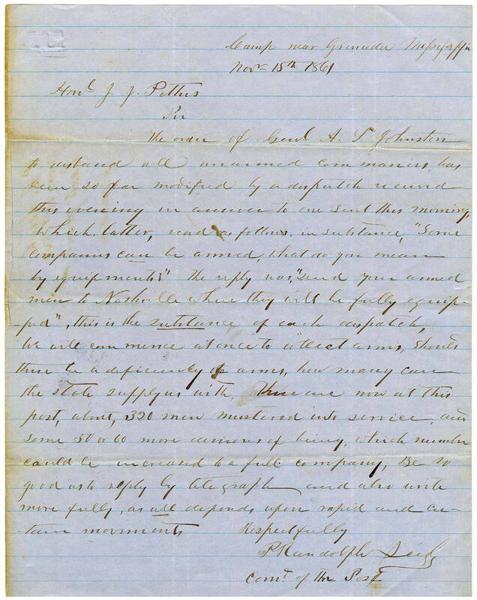 Camp near Grenada Mississippi
Nov 15th 1861
Honl J. J. Pettus
Sir
The order of Genl A. S. Johnston
to disband all unarmed companies has
been so far modified by a dispatch received
this evening in answer to one sent this morning,
which latter, read as follows, in substance, "Some
companies can be armed, what do you mean
by equipments;" the reply was, "send your armed
men to Nashville where they will be fully equip-
ped", this is the substance of each dispatch,
We will commence at once to collect arms, should
there be a deficiency of arms, how many can
the state supply us with, There are now at this
post, about, 1320 men mustered into service, and
some 50 or 60 more desirous of being, which number
could be increased to a full company, Be so
good as to reply by telegraph and also write
more fully, as all depends upon rapid and cer-
tain movements Respectfully
P Randolph
Comt of the Post